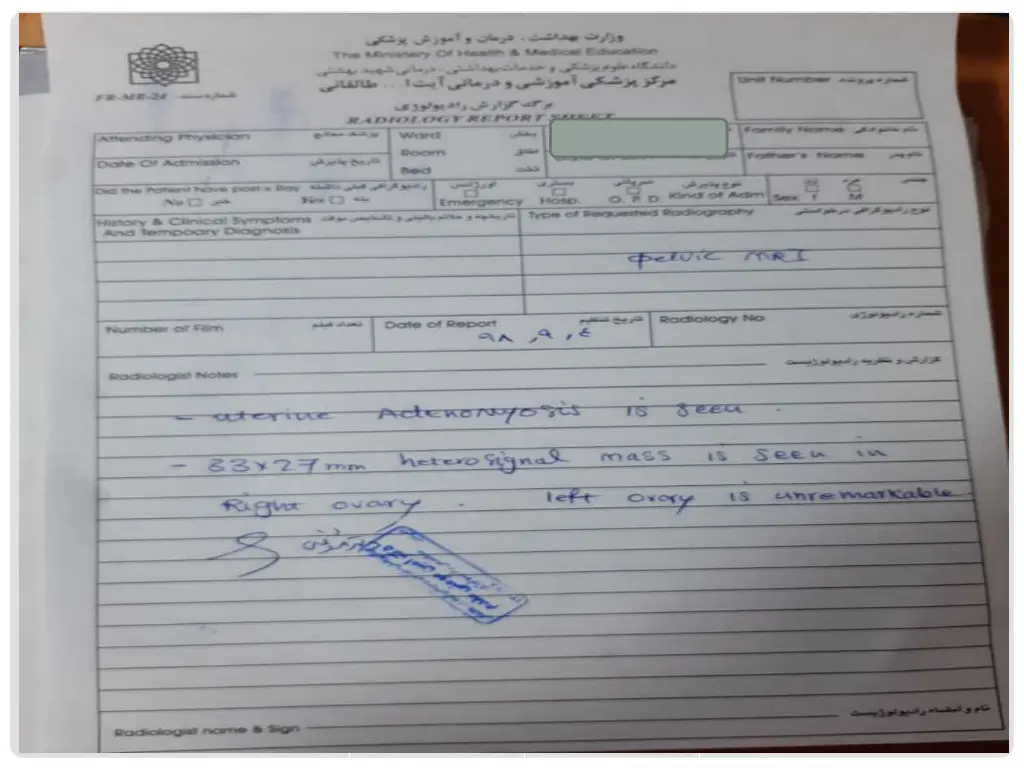 وزارت بهداشت، درمان و آموزش پزشکی
The Ministry Of Health & Medical Education
دانشگاه علوم پزشکی و خدمات بهداشتی - درمانی شهید بهشتی
مرکز پزشکی آموزشی و درمانی آیت ا... طالقانی
FR-MR-24 شماره سند:
برگه گزارش رادیولوژی
RADIOLOGY REPORT SHEET
Unit Number شماره پرونده
Attending Physician پزشک معالج
Ward بخش
Family Name نام خانوادگی
Date Of Admission تاریخ پذیرش
Room اطاق
Bed تخت
Father's Name نام پدر
Did the Patient have past x Ray رادیوگرافی قبلی داشته
No خیر Yes بله
اورژانس Emergency
بستری Hosp.
سرپائی O. P. D.
نوع پذیرش Kind of Adm
جنس Sex زن F مرد M
History & Clinical Symptoms تاریخچه و علائم بالینی و تشخیص موقت
And Tempoary Diagnosis
Type of Requested Radiography نوع رادیوگرافی درخواستی
pelvic MRI
Number of Film تعداد فیلم
Date of Report تاریخ تنظیم
۹۸,۹,۴
Radiology No شماره رادیولوژی
Radiologist Notes گزارش و نظریه رادیولوژیست
- uterine Adenomyosis is seen.
- 33x27mm heterosignal mass is seen in
Right ovary. left ovary is unremarkable.
Radiologist name & Sign نام و امضاء رادیولوژیست